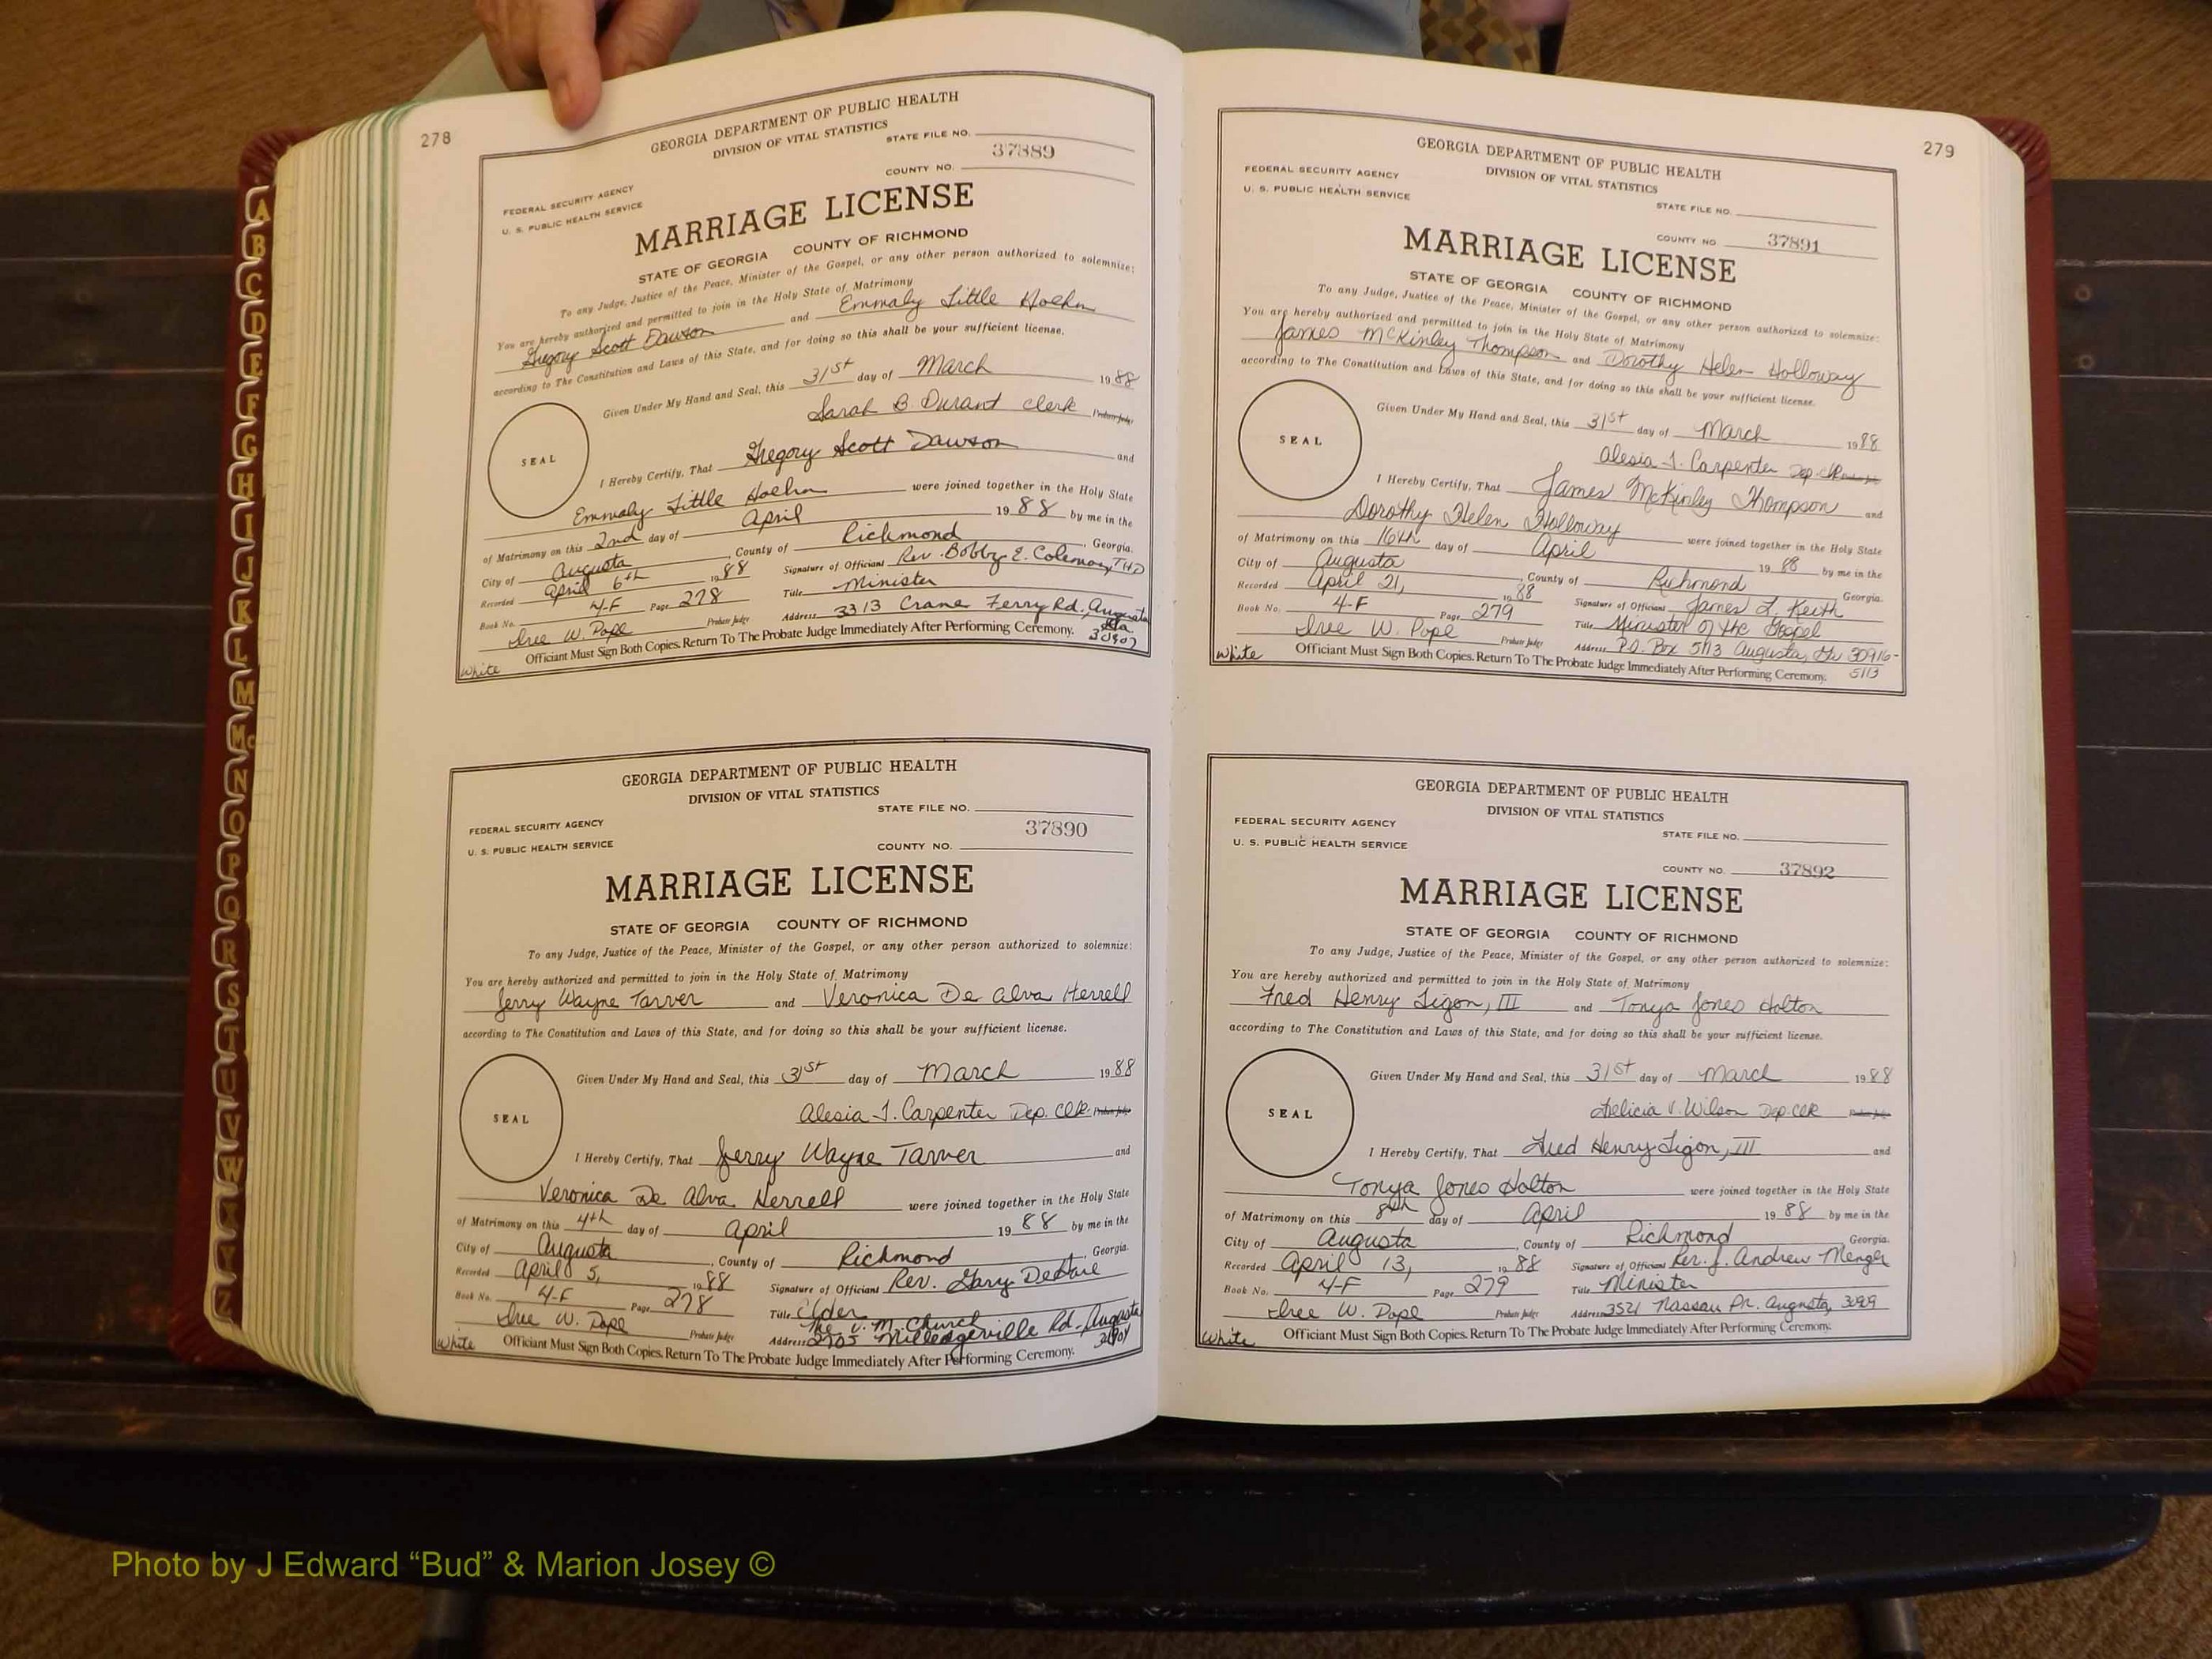 278
GEORGIA DEPARTMENT OF PUBLIC HEALTH
DIVISION OF VITAL STATISTICS
STATE FILE NO.
37889
COUNTY NO.
FEDERAL SECURITY AGENCY
U. S. PUBLIC HEALTH SERVICE
MARRIAGE LICENSE
STATE OF GEORGIA COUNTY OF RICHMOND
To any Judge, Justice of the Peace, Minister of the Gospel, or any other person authorized to solemnize:
You are hereby authorized and permitted to join in the Holy State of Matrimony
Gregory Scott Dawson and Emmaly Little Hoehn
according to The Constitution and Laws of this State, and for doing so this shall be your sufficient license.
Given Under My Hand and Seal, this 31st day of March 1988
Sarah B. Durant Clerk Probate Judge
SEAL
I Hereby Certify, That Gregory Scott Dawson and
Emmaly Little Hoehn were joined together in the Holy State
of Matrimony on this 2nd day of April 1988 by me in the
City of Augusta, County of Richmond, Georgia.
Recorded April 6th 1988 Signature of Officiant Rev. Bobby E. Coleman, THD
Book No. 4-F Page 278 Title Minister
Iree W. Pope Probate Judge Address 3313 Crane Ferry Rd., Augusta Ga. 30907
White Officiant Must Sign Both Copies. Return To The Probate Judge Immediately After Performing Ceremony.
GEORGIA DEPARTMENT OF PUBLIC HEALTH
DIVISION OF VITAL STATISTICS
STATE FILE NO.
FEDERAL SECURITY AGENCY
37890
U. S. PUBLIC HEALTH SERVICE
COUNTY NO.
MARRIAGE LICENSE
STATE OF GEORGIA COUNTY OF RICHMOND
To any Judge, Justice of the Peace, Minister of the Gospel, or any other person authorized to solemnize:
You are hereby authorized and permitted to join in the Holy State of Matrimony
Jerry Wayne Tarver and Veronica De Alva Herrell
according to The Constitution and Laws of this State, and for doing so this shall be your sufficient license.
Given Under My Hand and Seal, this 31st day of March 1988
Alesia J. Carpenter Dep. Clk. Probate Judge
SEAL
I Hereby Certify, That Jerry Wayne Tarver and
Veronica De Alva Herrell were joined together in the Holy State
of Matrimony on this 4th day of April 1988 by me in the
City of Augusta, County of Richmond, Georgia.
Recorded April 5, 1988 Signature of Officiant Rev. Gary
Book No. 4-F Page 278 Title Elder
The U.M. Church
Iree W. Pope Probate Judge Address 2705 Milledgeville Rd. Augusta 30904
White Officiant Must Sign Both Copies. Return To The Probate Judge Immediately After Performing Ceremony.
279
GEORGIA DEPARTMENT OF PUBLIC HEALTH
DIVISION OF VITAL STATISTICS
FEDERAL SECURITY AGENCY
U. S. PUBLIC HEALTH SERVICE
STATE FILE NO.
COUNTY NO. 37891
MARRIAGE LICENSE
STATE OF GEORGIA COUNTY OF RICHMOND
To any Judge, Justice of the Peace, Minister of the Gospel, or any other person authorized to solemnize:
You are hereby authorized and permitted to join in the Holy State of Matrimony
James McKinley Thompson and Dorothy Helen Holloway
according to The Constitution and Laws of this State, and for doing so this shall be your sufficient license.
Given Under My Hand and Seal, this 31st day of March 1988
Alesia J. Carpenter Dep. Clk Probate Judge
SEAL
I Hereby Certify, That James McKinley Thompson and
Dorothy Helen Holloway were joined together in the Holy State
of Matrimony on this 16th day of April 1988 by me in the
City of Augusta, County of Richmond Georgia.
Recorded April 21, 1988 Signature of Officiant James L. Keith
Book No. 4-F Page 279 Title Minister of the Gospel
Iree W. Pope Probate Judge Address P.O. Box 5113 Augusta, Ga 30916-5113
White Officiant Must Sign Both Copies. Return To The Probate Judge Immediately After Performing Ceremony.
GEORGIA DEPARTMENT OF PUBLIC HEALTH
DIVISION OF VITAL STATISTICS
FEDERAL SECURITY AGENCY
STATE FILE NO.
U. S. PUBLIC HEALTH SERVICE
COUNTY NO. 37892
MARRIAGE LICENSE
STATE OF GEORGIA COUNTY OF RICHMOND
To any Judge, Justice of the Peace, Minister of the Gospel, or any other person authorized to solemnize:
You are hereby authorized and permitted to join in the Holy State of Matrimony
Fred Henry Ligon, III and Tonya Jones Holton
according to The Constitution and Laws of this State, and for doing so this shall be your sufficient license.
Given Under My Hand and Seal, this 31st day of March 1988
Felicia V. Wilson Dep. Clk Probate Judge
SEAL
I Hereby Certify, That Fred Henry Ligon, III and
Tonya Jones Holton were joined together in the Holy State
of Matrimony on this 8th day of April 1988 by me in the
City of Augusta, County of Richmond Georgia.
Recorded April 13, 1988 Signature of Officiant Rev. J. Andrew Menger
Book No. 4-F Page 279 Title Minister
Iree W. Pope Probate Judge Address 3521 Nassau Dr. Augusta, 30909
White Officiant Must Sign Both Copies. Return To The Probate Judge Immediately After Performing Ceremony.
A
B
C
D
E
F
G
H
I
J
K
L
M
Mc
N
O
P
Q
R
S
T
U
V
W
X
Y
Z
Photo by J Edward “Bud” & Marion Josey ©